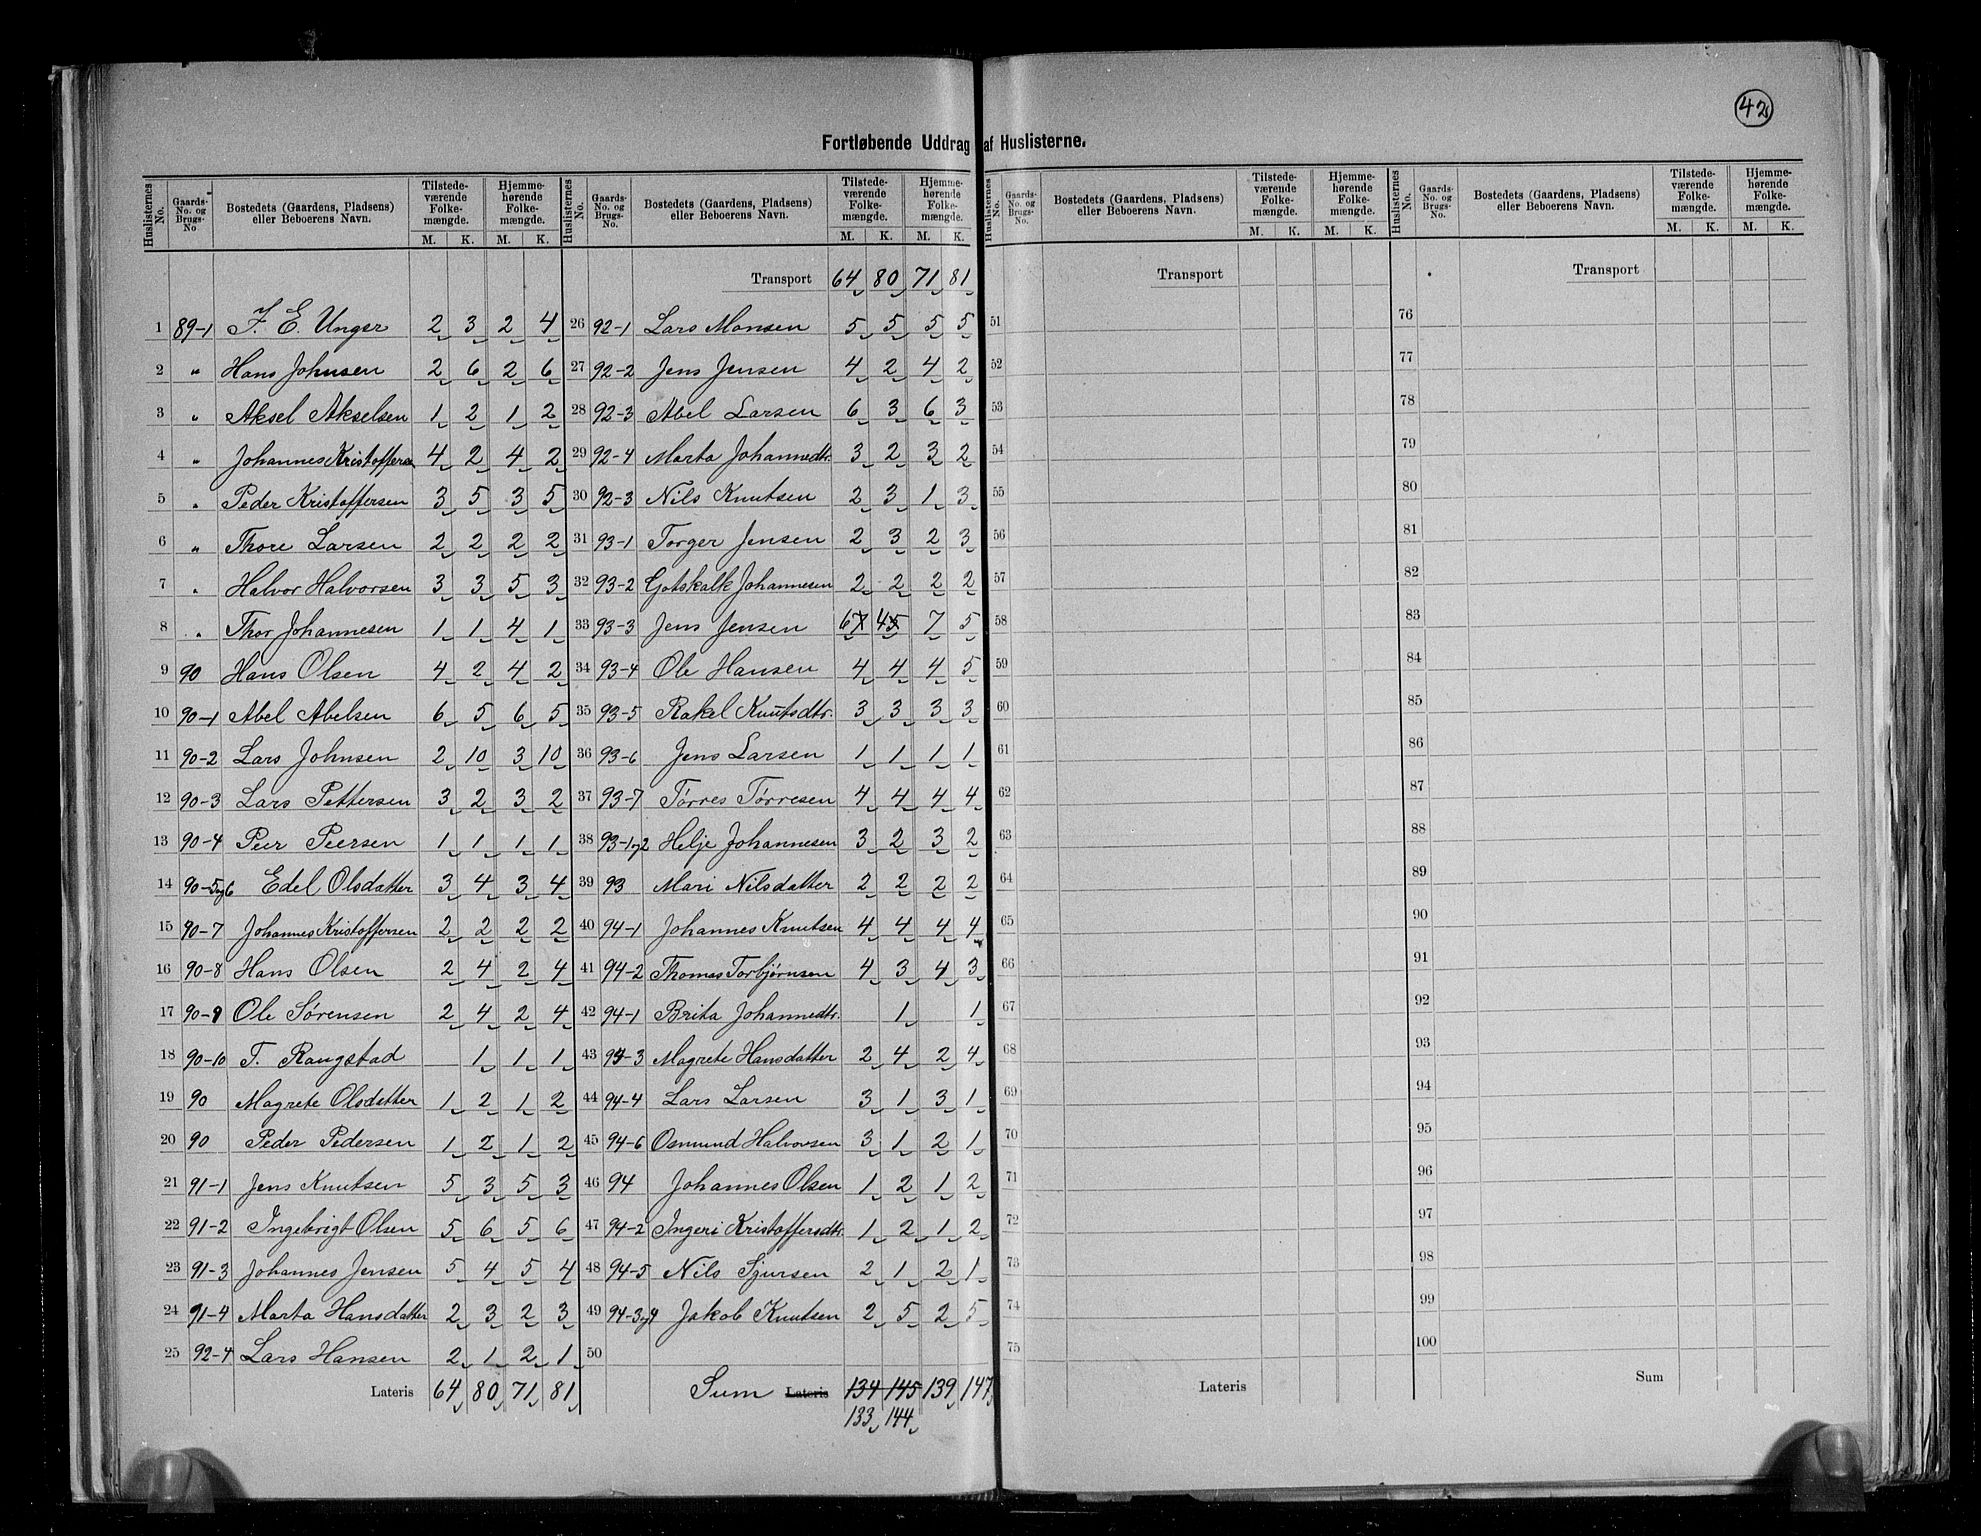 42
Fortløbende Uddrag af Huslisterne.
Huslisternes No. | Gaards-No. og Brugs-No | Bostedets (Gaardens, Pladsens) eller Beboerens Navn. | Tilstedeværende Folkemængde. M. K. | Hjemmehørende Folkemængde. M. K.
1 89-1 F. E. Unger 2 3 2 4
2 " Hans Johnsen 2 6 2 6
3 " Aksel Akselsen 1 2 1 2
4 " Johannes Kristoffersen 4 2 4 2
5 " Peder Kristoffersen 3 5 3 5
6 " Thore Larsen 2 2 2 2
7 " Halvor Halvorsen 3 3 5 3
8 " Thor Johannesen 1 1 4 1
9 90 Hans Olsen 4 2 4 2
10 90-1 Abel Abelsen 6 5 6 5
11 90-2 Lars Johnsen 2 10 3 10
12 90-3 Lars Pettersen 3 2 3 2
13 90-4 Peer Peersen 1 1 1 1
14 90-5og6 Edel Olsdatter 3 4 3 4
15 90-7 Johannes Kristoffersen 2 2 2 2
16 90-8 Hans Olsen 2 4 2 4
17 90-9 Ole Sørensen 2 4 2 4
18 90-10 T. Raugstad 1 1 1
19 90 Magrete Olsdatter 1 2 1 2
20 90 Peder Pedersen 1 2 1 2
21 91-1 Jens Knutsen 5 3 5 3
22 91-2 Ingebrigt Olsen 5 6 5 6
23 91-3 Johannes Jensen 5 4 5 4
24 91-4 Marta Hansdatter 2 3 2 3
25 92-4 Lars Hansen 2 1 2 1
Lateris 64 80 71 81
Huslisternes No. | Gaards-No. og Brugs-No. | Bostedets (Gaardens, Pladsens) eller Beboerens Navn. | Tilstedeværende Folkemængde. M. K. | Hjemmehørende Folkemængde. M. K.
Transport 64 80 71 81
26 92-1 Lars Monsen 5 5 5 5
27 92-2 Jens Jensen 4 2 4 2
28 92-3 Abel Larsen 6 3 6 3
29 92-4 Marta Johannedtr. 3 2 3 2
30 92-3 Nils Knutsen 2 3 1 3
31 93-1 Torger Jensen 2 3 2 3
32 93-2 Gotskalk Johannesen 2 2 2 2
33 93-3 Jens Jensen 67 45 7 5
34 93-4 Ole Hansen 4 4 4 5
35 93-5 Rakel Knutsdtr. 3 3 3 3
36 93-6 Jens Larsen 1 1 1 1
37 93-7 Tørres Tørresen 4 4 4 4
38 93-1og2 Helje Johannesen 3 2 3 2
39 93 Mari Nilsdatter 2 2 2 2
40 94-1 Johannes Knutsen 4 4 4 4
41 94-2 Thomas Torbjørnsen 4 3 4 3
42 94-1 Brita Johannedtr. 1 1
43 94-3 Magrete Hansdatter 2 4 2 4
44 94-4 Lars Larsen 3 1 3 1
45 94-6 Osmund Halvorsen 3 1 2 1
46 94 Johannes Olsen 1 2 1 2
47 94-2 Ingeri Kristoffersdtr. 1 2 1 2
48 94-5 Nils Sjursen 2 1 2 1
49 94-3og4 Jakob Knutsen 2 5 2 5
50
Sum Lateris 134 145 139 147
133 144
Huslisternes No. | Gaards-No. og Brugs-No. | Bostedets (Gaardens, Pladsens) eller Beboerens Navn. | Tilstedeværende Folkemængde. M. K. | Hjemmehørende Folkemængde. M. K.
Transport
51
52
53
54
55
56
57
58
59
60
61
62
63
64
65
66
67
68
69
70
71
72
73
74
75
Lateris
Huslisternes No. | Gaards-No. og Brugs-No. | Bostedets (Gaardens, Pladsens) eller Beboerens Navn. | Tilstedeværende Folkemængde. M. K. | Hjemmehørende Folkemængde. M. K.
Transport
76
77
78
79
80
81
82
83
84
85
86
87
88
89
90
91
92
93
94
95
96
97
98
99
100
Sum